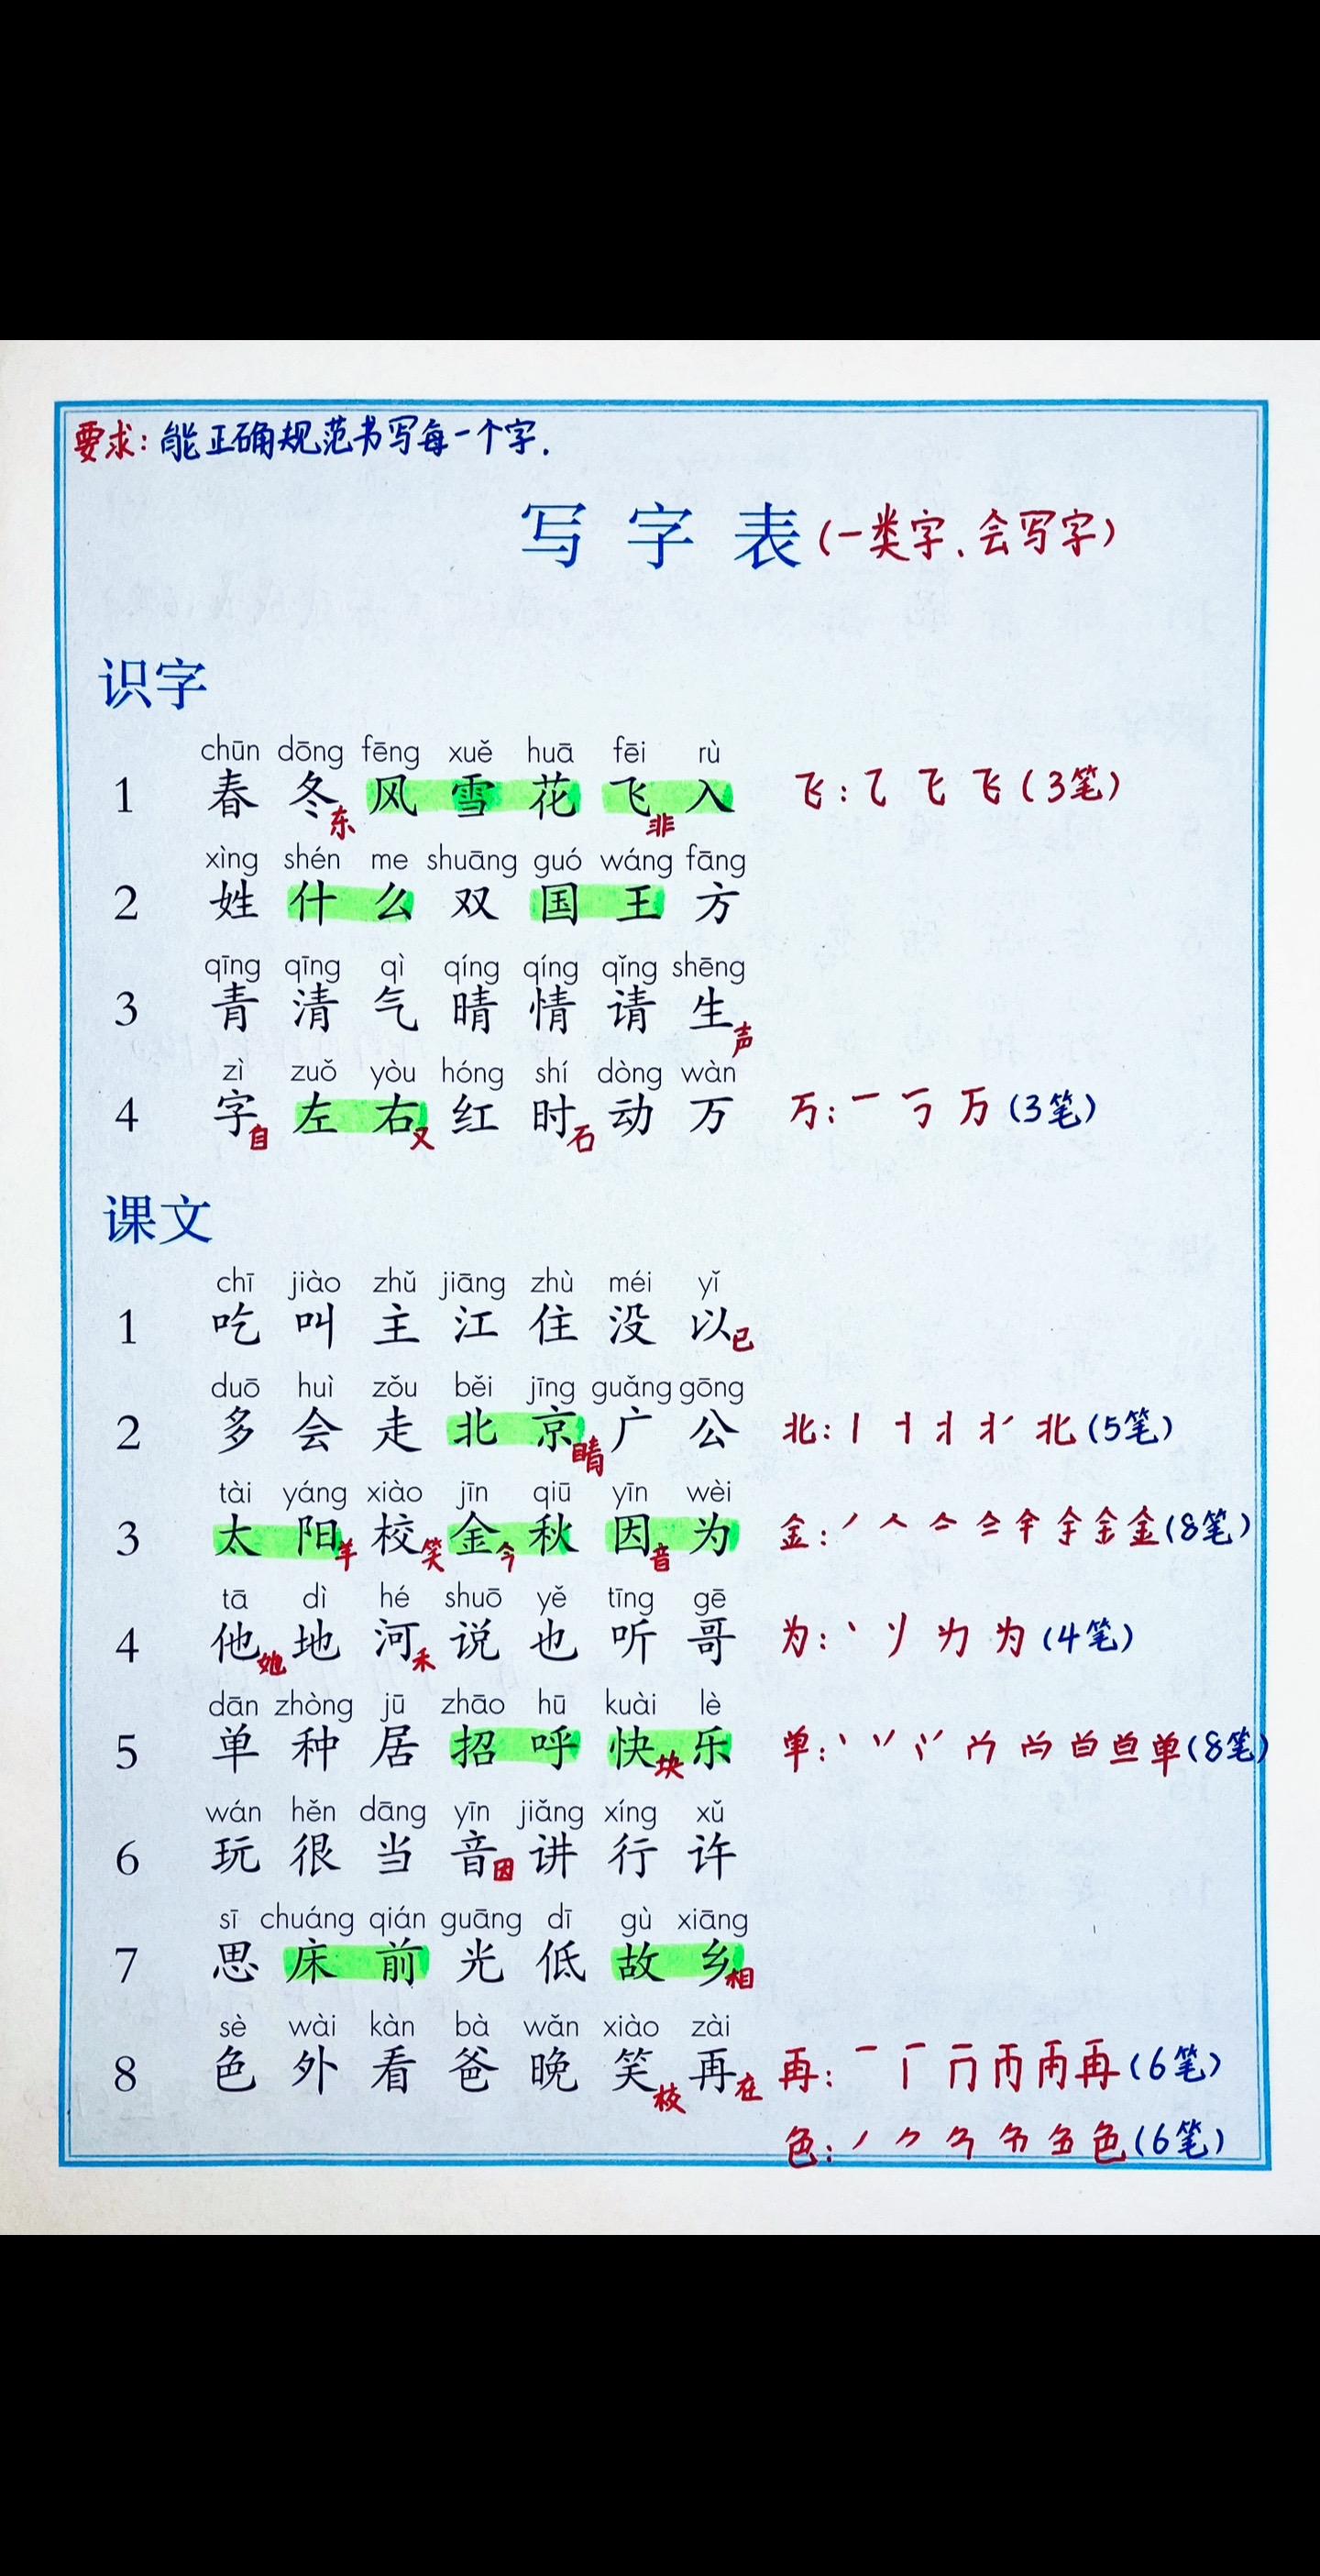 要求：能正确规范书写每一个字.
写字表(一类字、会写字)
识字
chūn dōng fēng xuě huā fēi rù
1 春 冬 东 风 雪 花 飞 非 入 飞：乁 飞 飞(3笔)
xìng shén me shuāng guó wáng fāng
2 姓 什 么 双 国 王 方
qīng qīng qì qíng qíng qǐng shēng
3 青 清 气 晴 情 请 生 声
zì zuǒ yòu hóng shí dòng wàn
4 字 自 左 右 又 红 时 石 动 万 万：一 丂 万(3笔)
课文
chī jiào zhǔ jiāng zhù méi yǐ
1 吃 叫 主 江 住 没 以 已
duō huì zǒu běi jīng guǎng gōng
2 多 会 走 北 京 睛 广 公 北：丨 北(5笔)
tài yáng xiào jīn qiū yīn wèi
3 太 阳 羊 校 笑 金 今 秋 因 音 为 金：丿 人 金(8笔)
tā dì hé shuō yě tīng gē
4 他 她 地 河 禾 说 也 听 哥 为：丶 为(4笔)
dān zhòng jū zhāo hū kuài lè
5 单 种 居 招 呼 快 块 乐 单：丶 单(8笔)
wán hěn dāng yīn jiǎng xíng xǔ
6 玩 很 当 音 因 讲 行 许
sī chuáng qián guāng dī gù xiāng
7 思 床 前 光 低 故 乡 相
sè wài kàn bà wǎn xiào zài
8 色 外 看 爸 晚 笑 校 再 在 再：一 再(6笔)
色：丿 色(6笔)